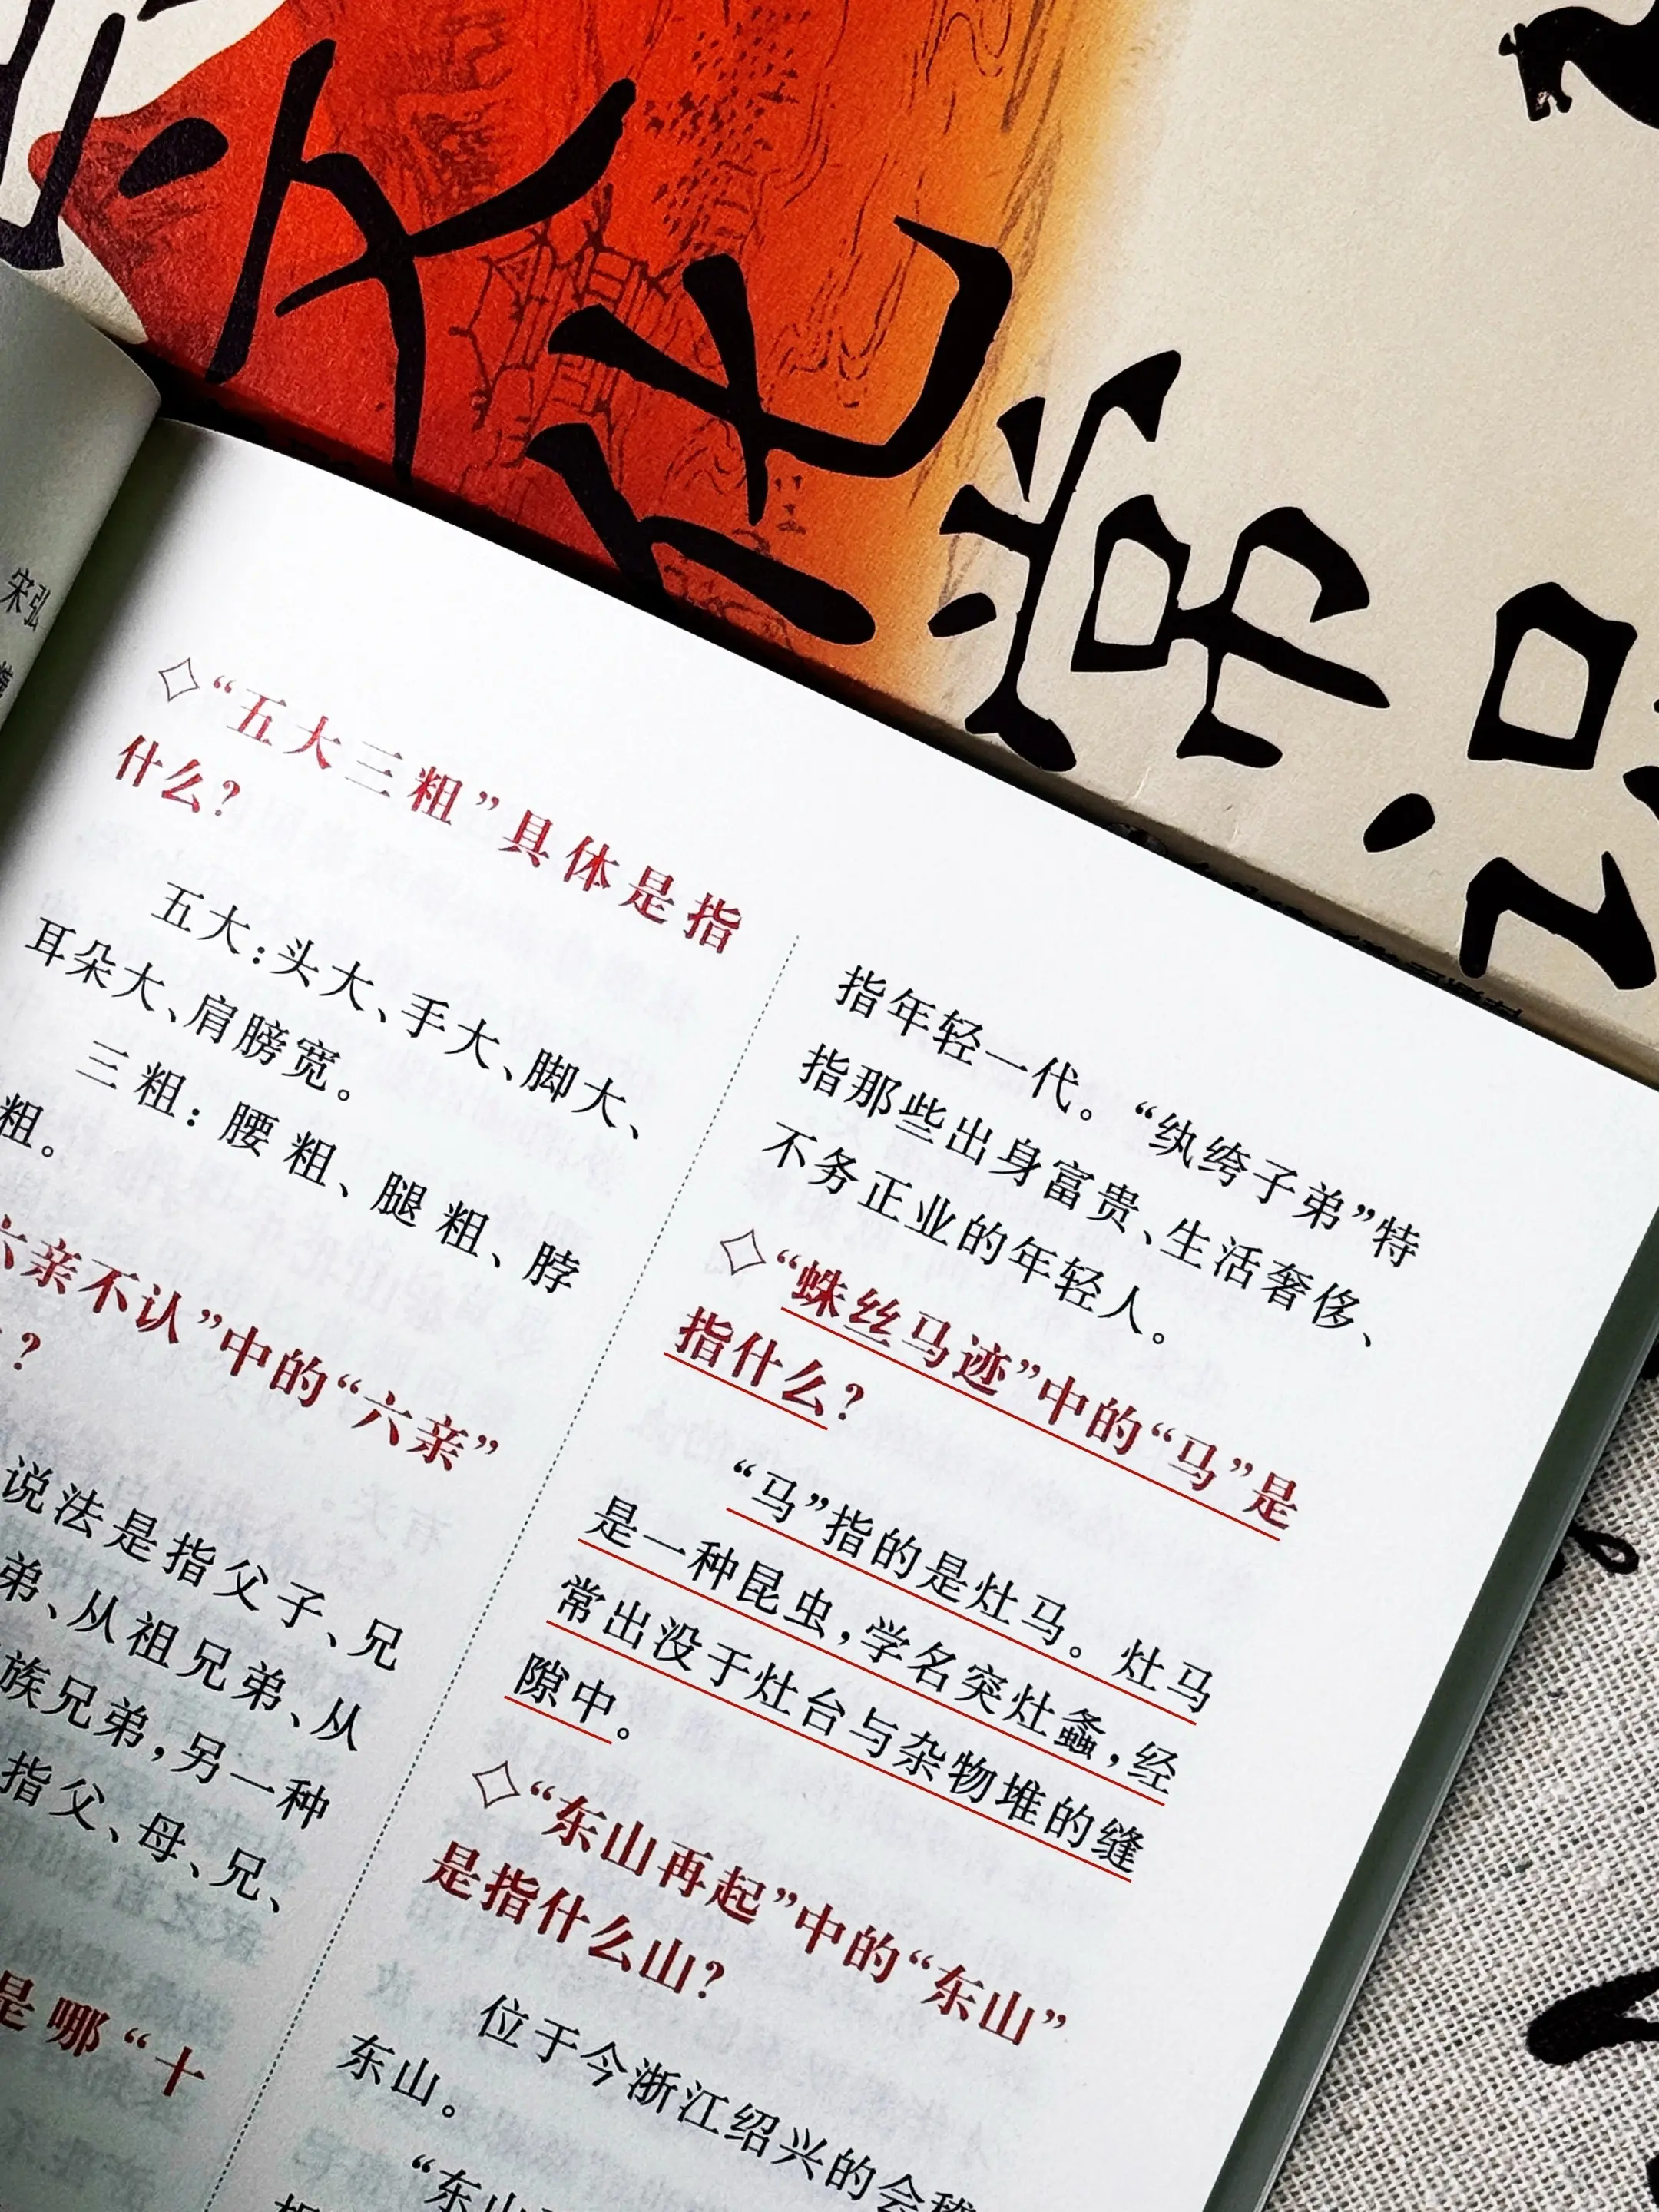 文化常识
宋弘
◇“五大三粗”具体是指
什么？
五大：头大、手大、脚大、
耳朵大、肩膀宽。
三粗：腰粗、腿粗、脖
粗。
六亲不认”中的“六亲”
？
说法是指父子、兄
弟、从祖兄弟、从
族兄弟，另一种
指父、母、兄、
是哪“十
指年轻一代。“纨绔子弟”特
指那些出身富贵、生活奢侈、
不务正业的年轻人。
◇“蛛丝马迹”中的“马”是
指什么？
“马”指的是灶马。灶马
是一种昆虫，学名突灶螽，经
常出没于灶台与杂物堆的缝
隙中。
◇“东山再起”中的“东山”
是指什么山？
位于今浙江绍兴的会稽
东山。
“东山